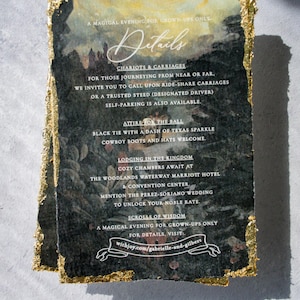 A MAGICAL EVENING FOR GROWN-UPS ONLY
Details
CHARIOTS & CARRIAGES
FOR THOSE JOURNEYING FROM NEAR OR FAR,
WE INVITE YOU TO CALL UPON RIDE-SHARE CARRIAGES
OR A TRUSTED STEED (DESIGNATED DRIVER)
SELF-PARKING IS ALSO AVAILABLE.
ATTIRE FOR THE BALL
BLACK TIE WITH A DASH OF TEXAS SPARKLE
COWBOY BOOTS AND HATS WELCOME.
LODGING IN THE KINGDOM
COZY CHAMBERS AWAIT AT
THE WOODLANDS WATERWAY MARRIOTT HOTEL
& CONVENTION CENTER.
MENTION THE PEREZ-SORIANO WEDDING
TO UNLOCK YOUR NOBLE RATE.
SCROLLS OF WISDOM
A MAGICAL EVENING FOR GROWN-UPS ONLY
FOR DETAILS, VISIT:
withjoy.com/gabriella-and-gilbert